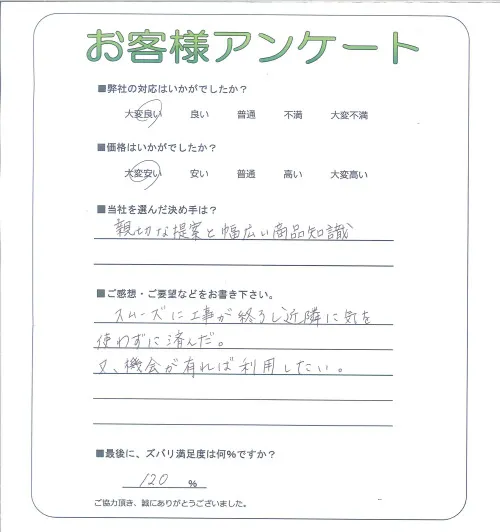 お客様アンケート
■弊社の対応はいかがでしたか?
大変良い 良い 普通 不満 大変不満
■価格はいかがでしたか?
大変安い 安い 普通 高い 大変高い
■当社を選んだ決め手は?
親切な提案と幅広い商品知識
■ご感想・ご要望などをお書き下さい。
スムーズに工事が終ろし近隣に気を
使わずに済んだ。
又、機会が有れば利用したい。
■最後に、ズバリ満足度は何%ですか?
120 %
ご協力頂き、誠にありがとうございました。